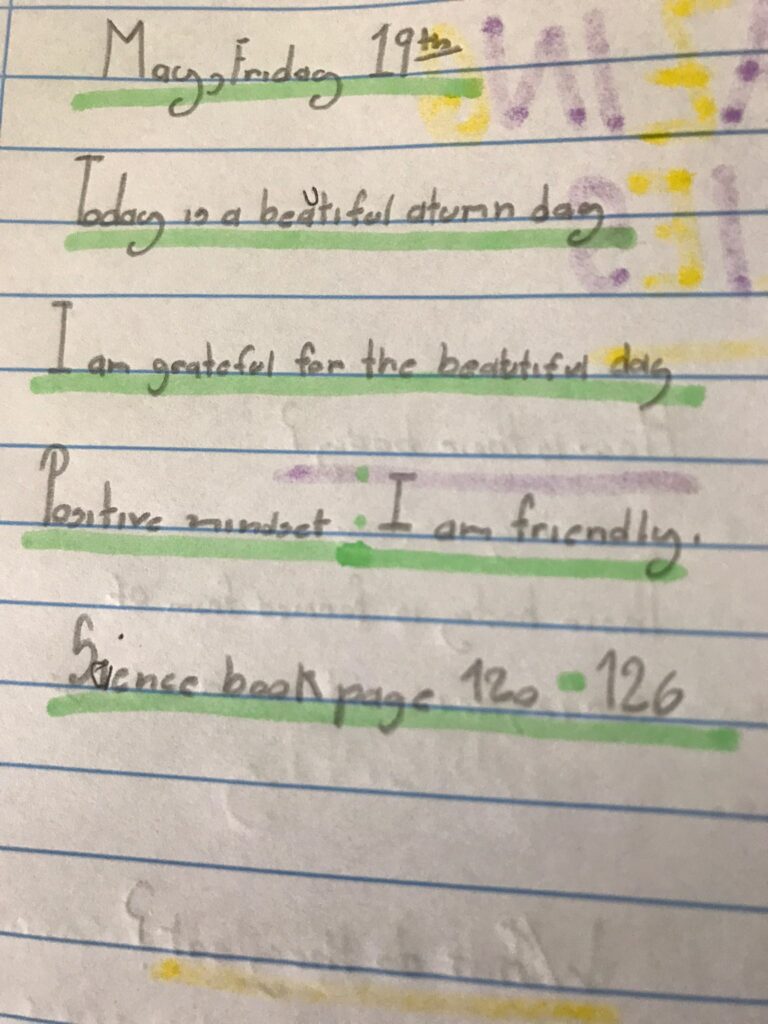 May, Friday 19th
Today is a beautiful atumn day
I am grateful for the beatutiful day
Positive mindset : I am friendly.
Science book page 120 - 126